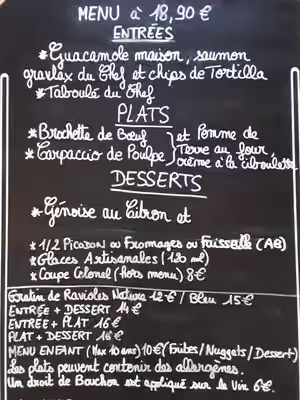 MENU à 18,90 €
ENTRÉES
*Guacamole maison, saumon
gravlax du Chef et chips de Tortilla
*Taboulé du Chef
PLATS
*Brochette de Bœuf } et Pomme de
*Carpaccio de Poulpe } Terre au four,
crème à la ciboulette
DESSERTS
*Génoise au Citron et
*1/2 Picodon ou Fromages ou Faisselle (AB)
*Glaces Artisanales (120 ml)
*Coupe Colonel (hors menu) 8€
Gratin de Ravioles Nature 12€ / Bleu 15€
ENTRÉE + DESSERT 14€
ENTRÉE + PLAT 16€
PLAT + DESSERT 16€
MENU ENFANT (Max 10 ans) 10€ (Frites/Nuggets/Dessert)
Les plats peuvent contenir des allergènes.
Un droit de Bouchon est appliqué sur le vin 6€.